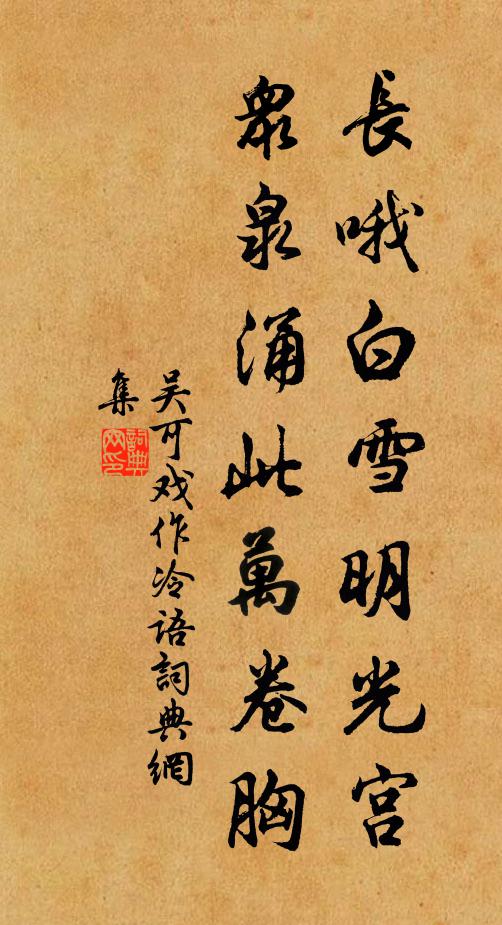 長哦白雪明光宫
衆泉涌此萬卷胸
吴可戏作冷语詞典網
集
詞典
网印